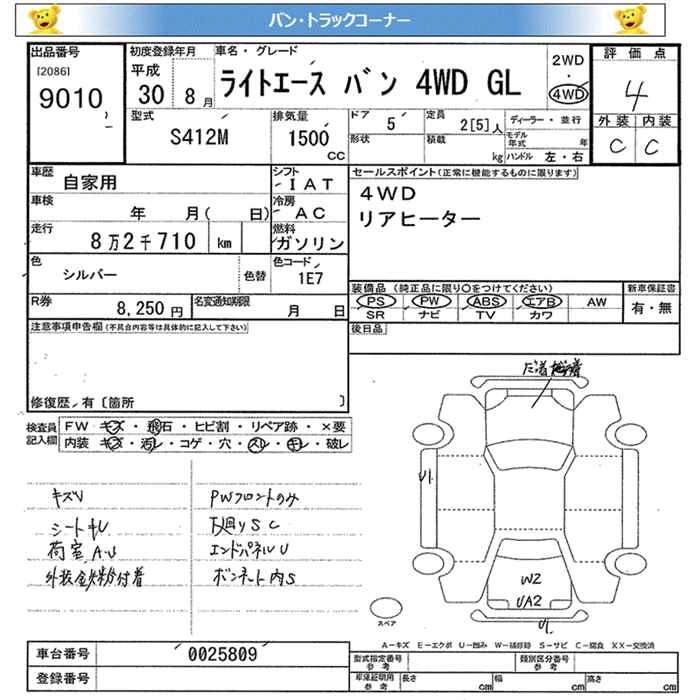 バン・トラックコーナー
出品番号 初度登録年月 車名・グレード 2WD 評価点
[2086]
9010
平成 30 8月
ライトエース バン 4WD GL
・ 4WD
4
型式 排気量 ドア 定員 ディーラー・並行 外装 内装
S412M 1500 CC 5 2[5]人
形状 積載 kg モデル年式 年
ハンドル 左・右
C C
車歴 自家用 シフト IAT
セールスポイント(正常に機能するものに限ります)
4WD
リアヒーター
車検 年 月( 日) 冷房 AC
走行 8万2千710 km 燃料 ガソリン
色 シルバー 色替 色コード 1E7
装備品(純正品に限り○をつけてください) 新車保証書
PS PW ABS エアB AW 有・無
SR ナビ TV カワ
R券 8,250円 名変通知期限 月 日
後日品
注意事項申告欄(不具合内容等は具体的に記入して下さい)
修復歴・有〔箇所 〕
検査員記入欄 FW キズ・飛石・ヒビ割・リペア跡・×要
内装 キズ・汚レ・コゲ・穴・スレ・キレ・破レ
キズU PWフロントのみ
シートキU 下廻りSC
荷室A.U エンドパネルU
外板鉄粉付着 ボンネット内S
U1
W2
UA2
U1
スペア
A-キズ E-エクボ U-凹み W-補修跡 S-サビ C-腐食 XX-交換済
車台番号 0025809
登録番号
型式指定番号 参考 類別区分番号 参考
車庫証明用 参考 長さ cm 幅 cm 高さ cm